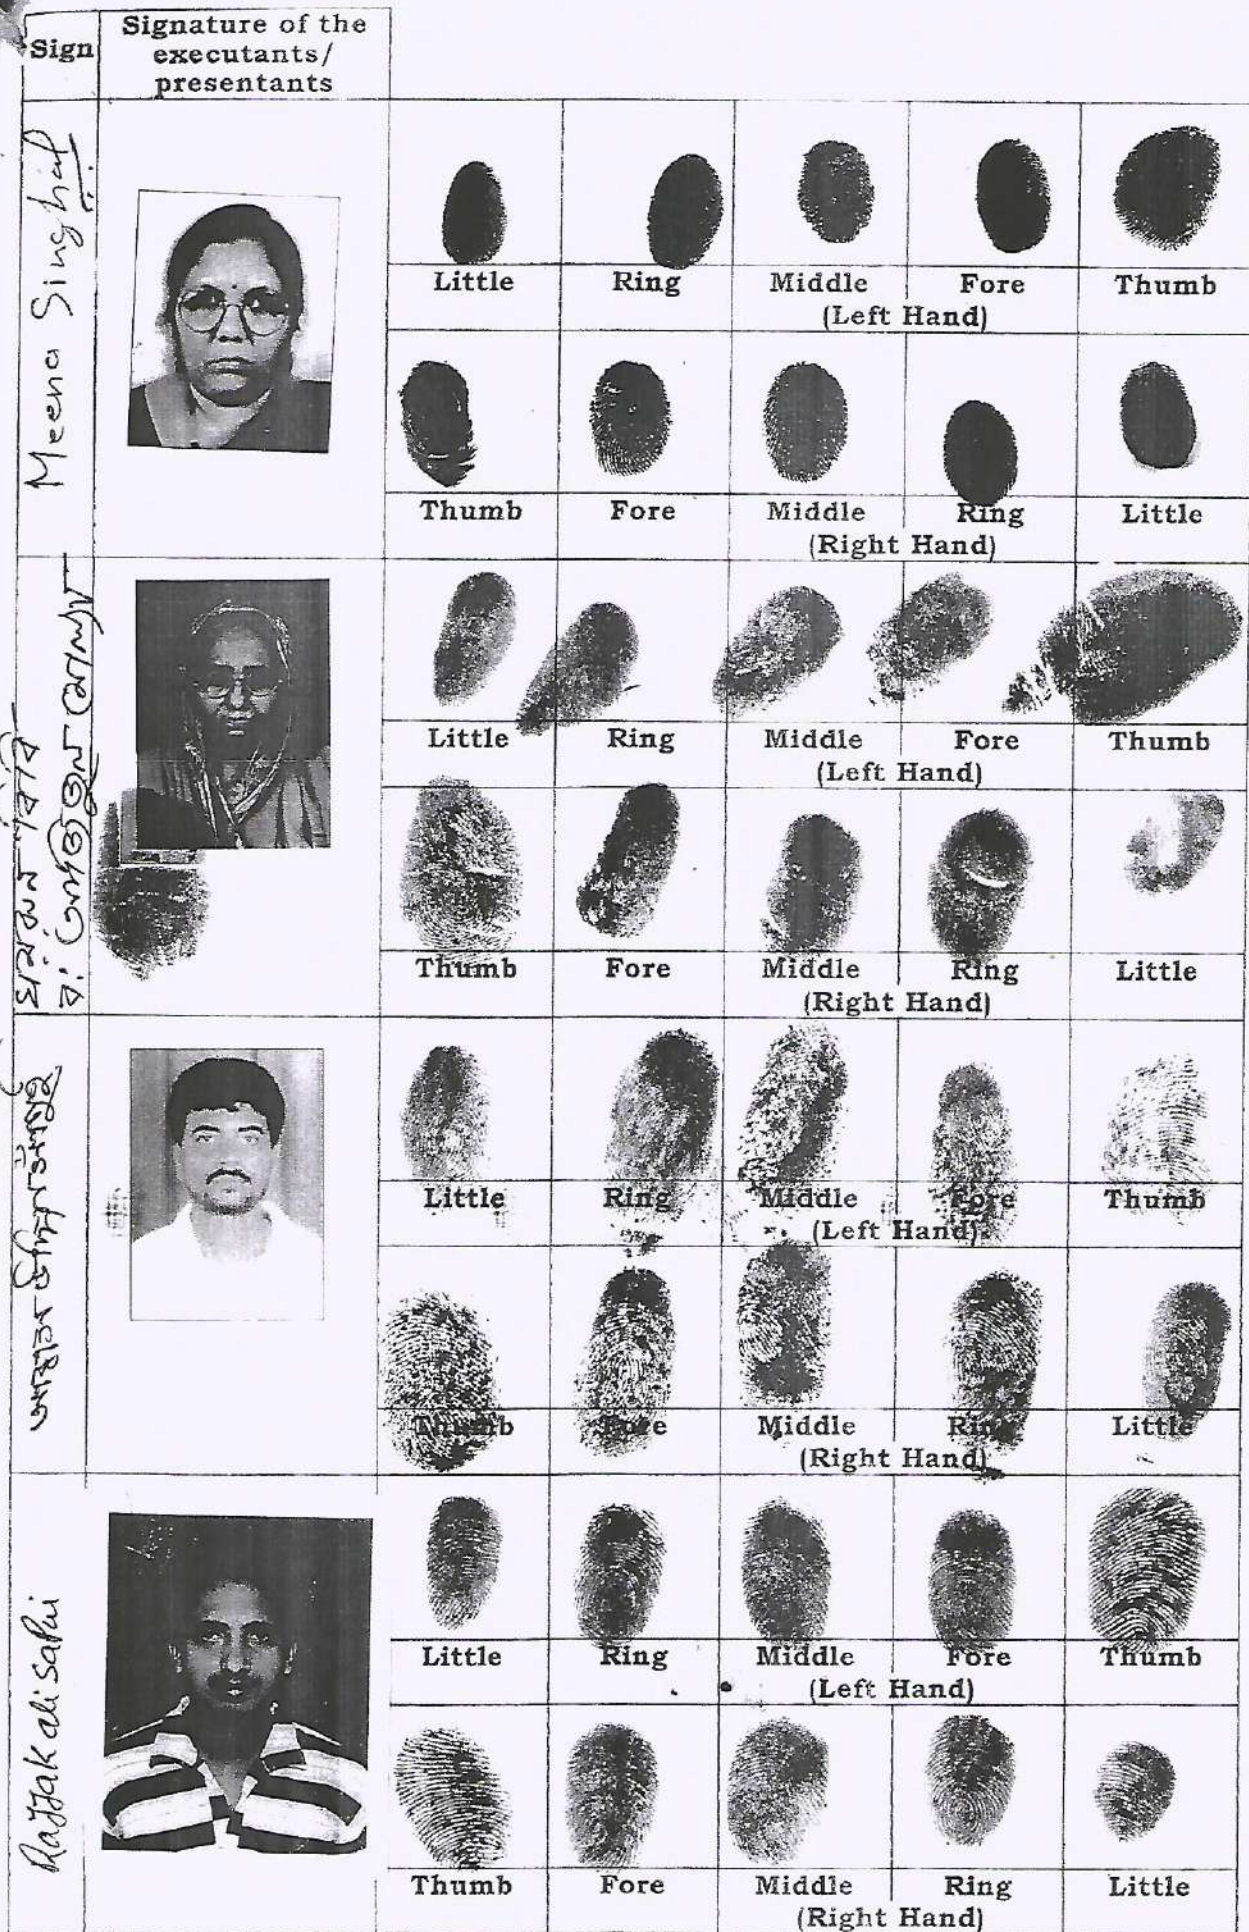 Sign
Signature of the
executants/
presentants
Meena Singhal
Little Ring Middle Fore Thumb
(Left Hand)
Thumb Fore Middle Ring Little
(Right Hand)
Little Ring Middle Fore Thumb
(Left Hand)
Thumb Fore Middle Ring Little
(Right Hand)
Little Ring Middle Fore Thumb
(Left Hand)
Thumb Fore Middle Ring Little
(Right Hand)
Little Ring Middle Fore Thumb
(Left Hand)
Thumb Fore Middle Ring Little
(Right Hand)